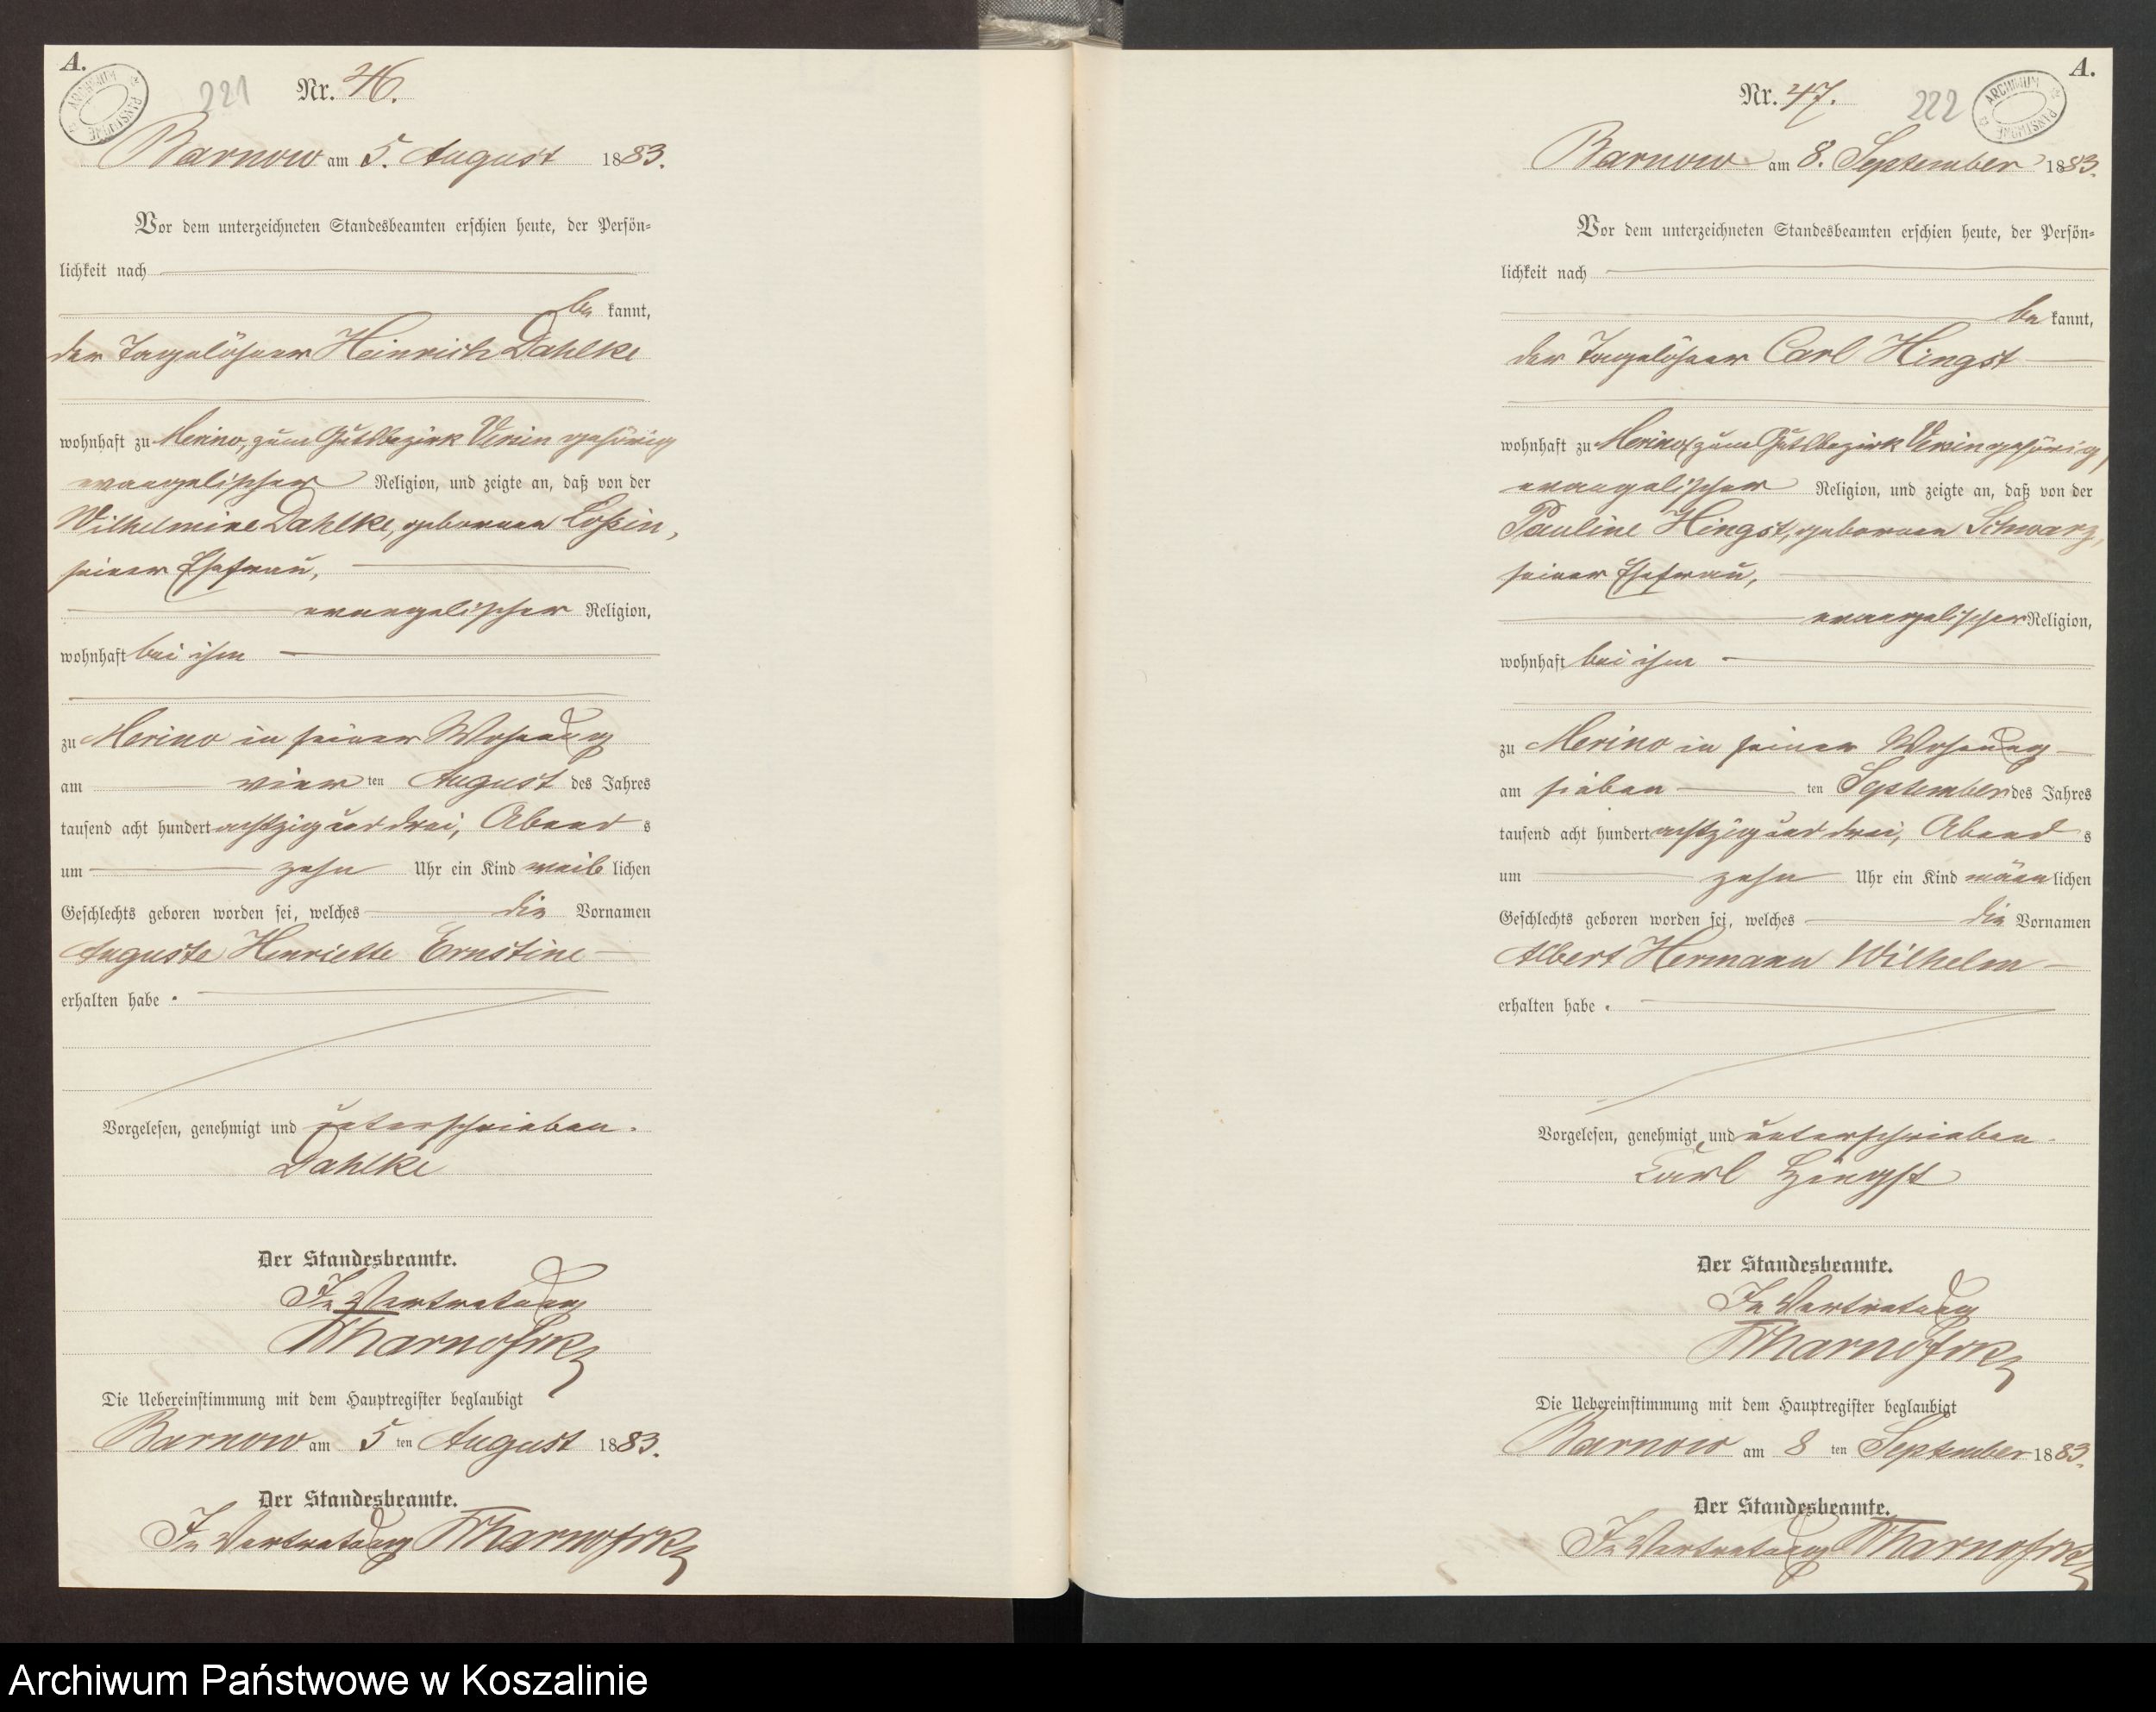 A.
ARCHIWUM PAŃSTWOWE
221
Nr. 46.
Barnow am 5. August 1883.
Vor dem unterzeichneten Standesbeamten erschien heute, der Persön-
lichkeit nach
be kannt,
der Tagelöhner Heinrich Dahlke
wohnhaft zu Merino, zum Gutsbezirk Versin gehörig
evangelischer Religion, und zeigte an, daß von der
Wilhelmine Dahlke, geborenen Loßin,
seiner Ehefrau,
evangelischer Religion,
wohnhaft bei ihm
zu Merino in seiner Wohnung
am vier ten August des Jahres
tausend acht hundert achtzig und drei, Abend s
um zehn Uhr ein Kind weib lichen
Geschlechts geboren worden sei, welches die Vornamen
Auguste Henriette Ernstine
erhalten habe.
Vorgelesen, genehmigt und unterschrieben.
Dahlke
Der Standesbeamte.
In Vertretung
Die Uebereinstimmung mit dem Hauptregister beglaubigt
Barnow am 5 ten August 1883.
Der Standesbeamte.
In Vertretung
A.
ARCHIWUM PAŃSTWOWE
222
Nr. 47.
Barnow am 8. September 1883.
Vor dem unterzeichneten Standesbeamten erschien heute, der Persön-
lichkeit nach
be kannt,
der Tagelöhner Carl Hingst
wohnhaft zu Merino (zum Gutsbezirk Versin gehörig)
evangelischer Religion, und zeigte an, daß von der
Pauline Hingst, geborenen Schwarz,
seiner Ehefrau,
evangelischer Religion,
wohnhaft bei ihm
zu Merino in seiner Wohnung
am sieben ten September des Jahres
tausend acht hundert achtzig und drei, Abend s
um zehn Uhr ein Kind männ lichen
Geschlechts geboren worden sei, welches die Vornamen
Albert Hermann Wilhelm
erhalten habe.
Vorgelesen, genehmigt und unterschrieben.
Carl Hingst
Der Standesbeamte.
In Vertretung
Die Uebereinstimmung mit dem Hauptregister beglaubigt
Barnow am 8 ten September 1883.
Der Standesbeamte.
In Vertretung
Archiwum Państwowe w Koszalinie